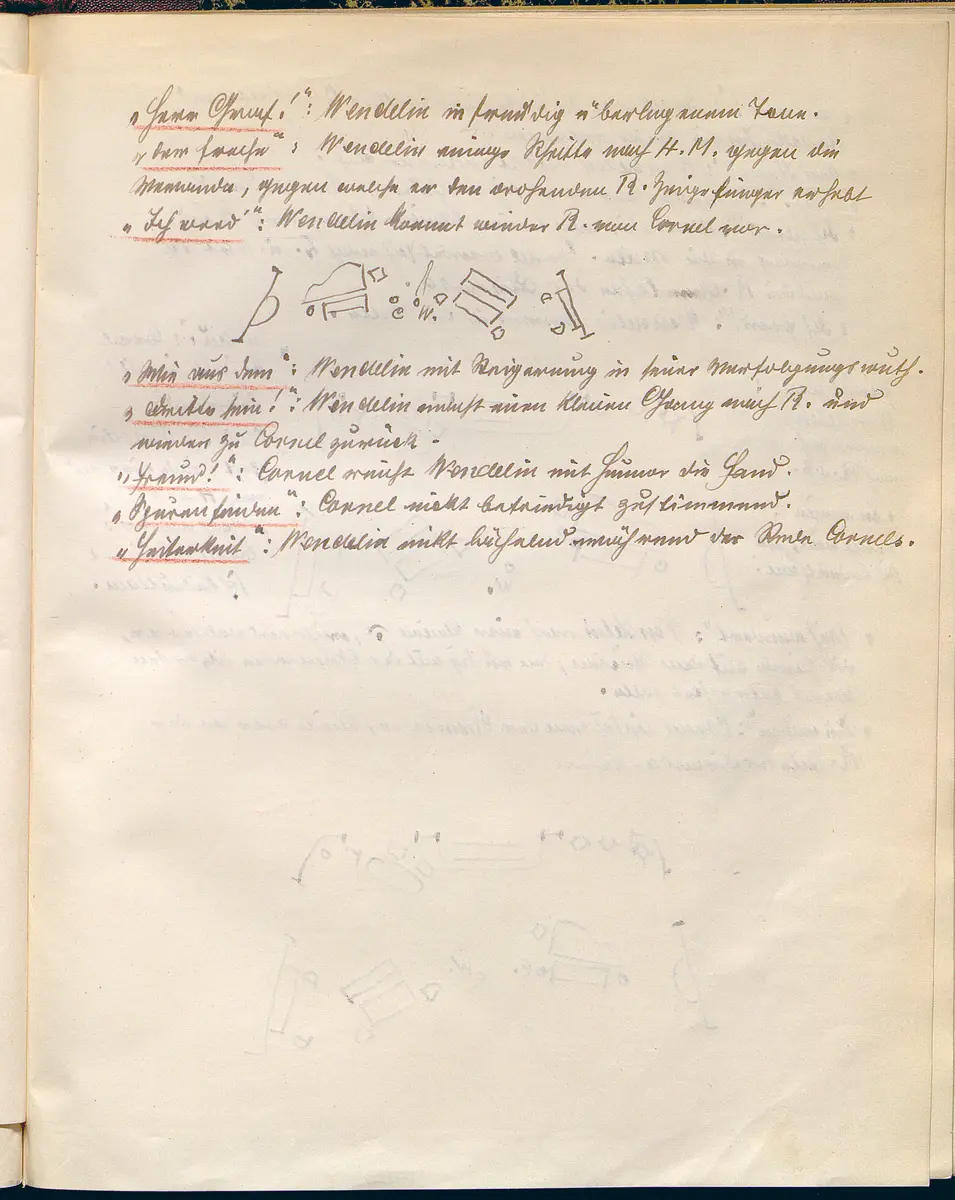 „Herr Graf!“: Wendelin in freudig überlegenem Tone.
„der freche“: Wendelin einige Schritte nach H. M. gegen die
Veranda, gegen welche er den drohenden R. Zeigefinger erhebt
„Ich werd'“: Wendelin kommt wieder R. von Cornel vor.
C W.
„Wie aus dem“: Wendelin mit Steigerung in seiner Verfolgungswuth.
„dritte sein!“: Wendelin macht einen kleinen Gang nach R. und
wieder zu Cornel zurück.
„Freund!“: Cornel reicht Wendelin mit Humor die Hand.
„Spuren finden“: Cornel nickt befriedigt zustimmend.
„Heiterkeit“: Wendelin nickt lächelnd während der Rede Cornels.